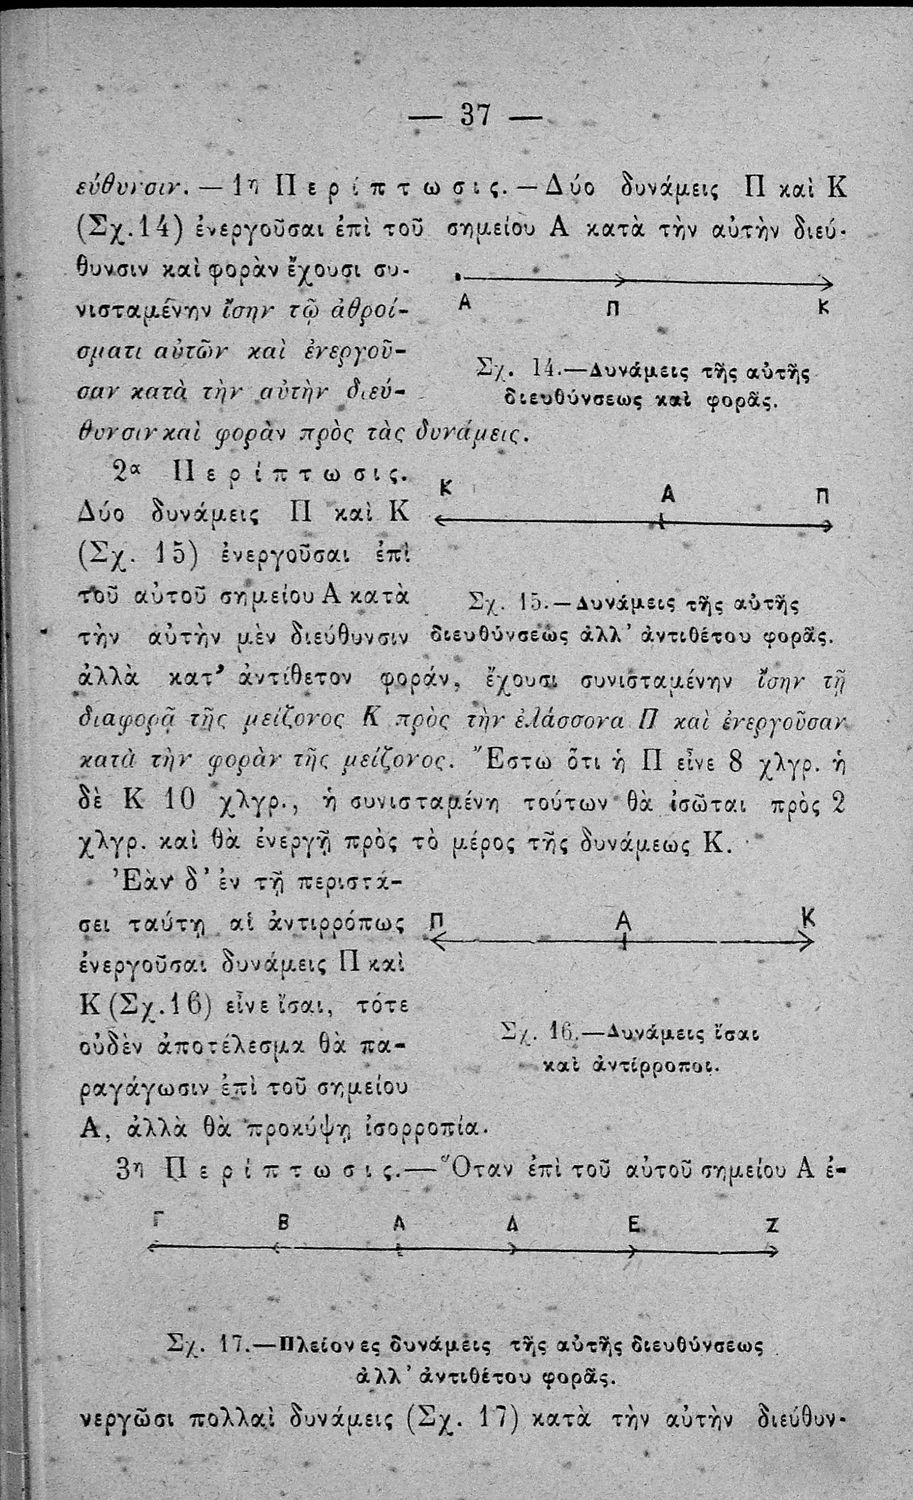 — 37 —
εὐθυνσιν. — 1η Περίπτωσις. — Δύο δυνάμεις Π καὶ Κ
(Σχ.14) ἐνεργοῦσαι ἐπὶ τοῦ σημείου Α κατὰ τὴν αὐτὴν διεύ-
θυνσιν καὶ φορὰν ἔχουσι συ-
νισταμένην ἴσην τῷ ἀθροί-
σματι αὐτῶν καὶ ἐνεργοῦ-
σαν κατὰ τὴν αὐτὴν διεύ-
θυνσιν καὶ φορὰν πρὸς τὰς δυνάμεις.
Α Π Κ
Σχ. 14.—Δυνάμεις τῆς αὐτῆς
διευθύνσεως καὶ φορᾶς.
2α Περίπτωσις.
Δύο δυνάμεις Π καὶ Κ
(Σχ. 15) ἐνεργοῦσαι ἐπὶ
τοῦ αὐτοῦ σημείου Α κατὰ
τὴν αὐτὴν μὲν διεύθυνσιν
Κ Α Π
Σχ. 15.—Δυνάμεις τῆς αὐτῆς
διευθύνσεως ἀλλ' ἀντιθέτου φορᾶς.
ἀλλὰ κατ' ἀντίθετον φοράν, ἔχουσι συνισταμένην ἴσην τῇ
διαφορᾷ τῆς μείζονος Κ πρὸς τὴν ἐλάσσονα Π καὶ ἐνεργοῦσαν
κατὰ τὴν φορὰν τῆς μείζονος. Ἔστω ὅτι ἡ Π εἶνε 8 χλγρ. ἡ
δὲ Κ 10 χλγρ., ἡ συνισταμένη τούτων θὰ ἰσῶται πρὸς 2
χλγρ. καὶ θὰ ἐνεργῇ πρὸς τὸ μέρος τῆς δυνάμεως Κ.
Ἐὰν δ' ἐν τῇ περιστά-
σει ταύτῃ αἱ ἀντιρρόπως
ἐνεργοῦσαι δυνάμεις Π καὶ
Κ (Σχ.16) εἶνε ἴσαι, τότε
οὐδὲν ἀποτέλεσμα θὰ πα-
ραγάγωσιν ἐπὶ τοῦ σημείου
Α, ἀλλὰ θὰ προκύψῃ ἰσορροπία.
Π Α Κ
Σχ. 16.—Δυνάμεις ἴσαι
καὶ ἀντίρροποι.
3η Περίπτωσις.—Ὅταν ἐπὶ τοῦ αὐτοῦ σημείου Α ἐ-
Γ Β Α Δ Ε Ζ
Σχ. 17.—Πλείονες δυνάμεις τῆς αὐτῆς διευθύνσεως
ἀλλ' ἀντιθέτου φορᾶς.
νεργῶσι πολλαὶ δυνάμεις (Σχ. 17) κατὰ τὴν αὐτὴν διεύθυν-